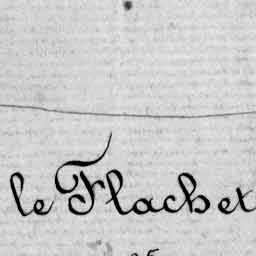 le Flachet